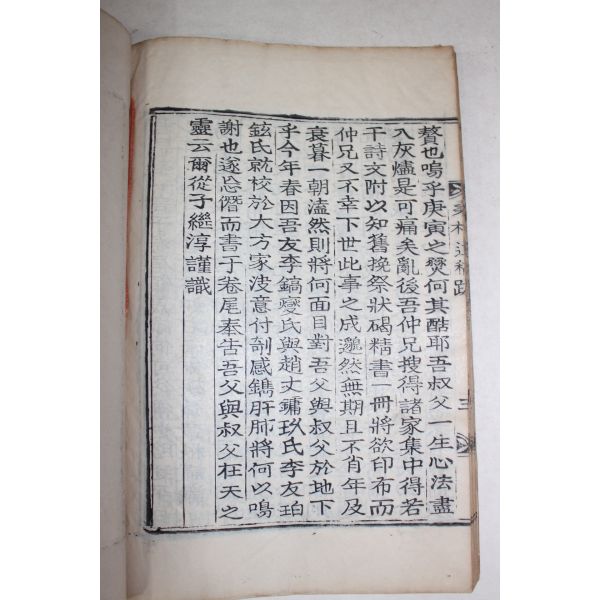 贅也嗚乎庚寅之燹何其酷耶吾叔父一生心法盡
入灰燼是可痛矣亂後吾仲兄搜得諸家集中得若
干詩文附以知舊挽祭狀碣精書一冊將欲印布而
仲兄又不幸下世此事之成邈然無期且不肖年及
衰暮一朝溘然則將何面目對吾父與叔父於地下
乎今年春因吾友李鎬燮氏與趙丈鏞玖氏李友珀
鉉氏就校於大方家決意付剞感鐫肝肺將何以鳴
謝也遂忘僭而書于卷尾奉告吾父與叔父在天之
靈云爾從子繼淳謹識
遺稿跋
三